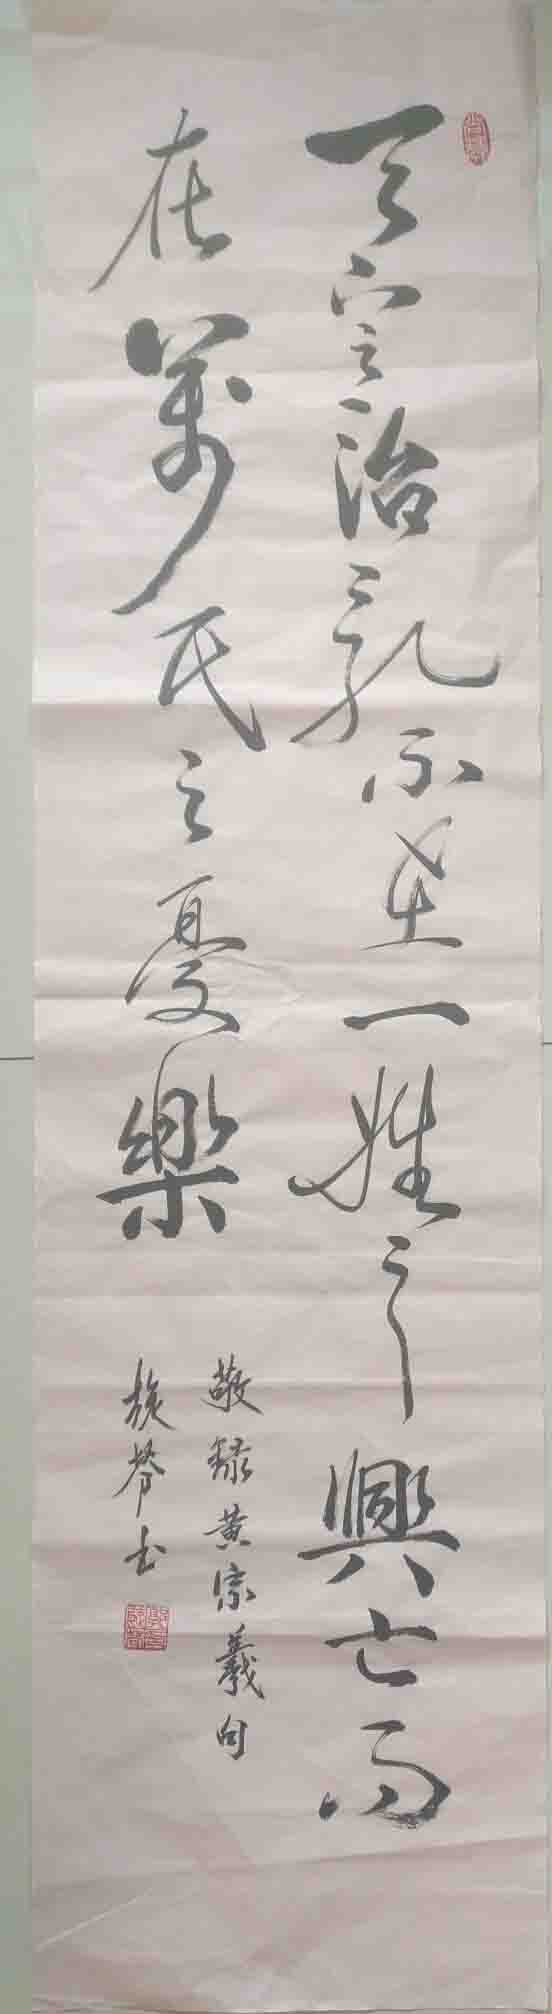 天下之治亂不在一姓之興亡而
在萬民之憂樂
敬錄黄宗羲句
书